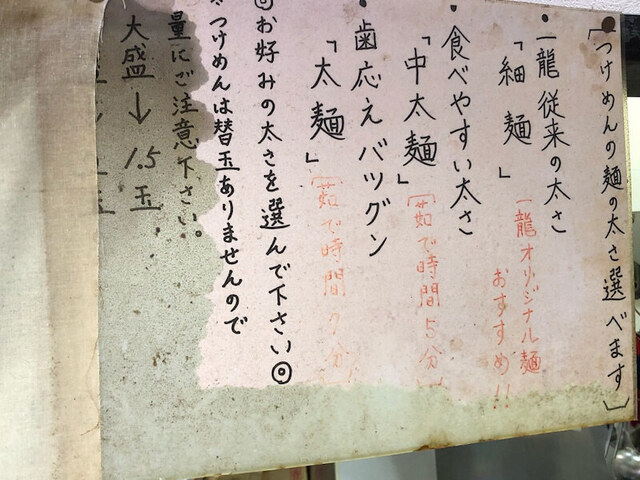 [つけめんの麺の太さ選べます]
・一龍従来の太さ
「細麺」
一龍オリジナル麺
おすすめ!!
・食べやすい太さ
「中太麺」
[茹で時間5分
・歯応えバツグン
「太麺」
[茹で時間7分
◎お好みの太さを選んで下さい◎
つけめんは替玉ありませんので
量にご注意下さい。
大盛→1.5玉